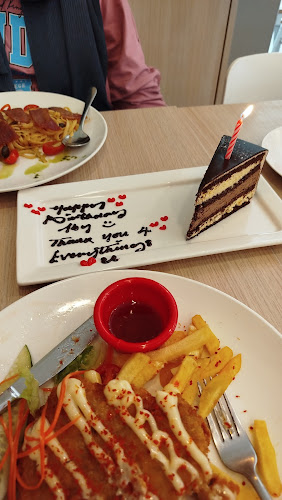 Happy
Birthday
Thank you 4
Everything